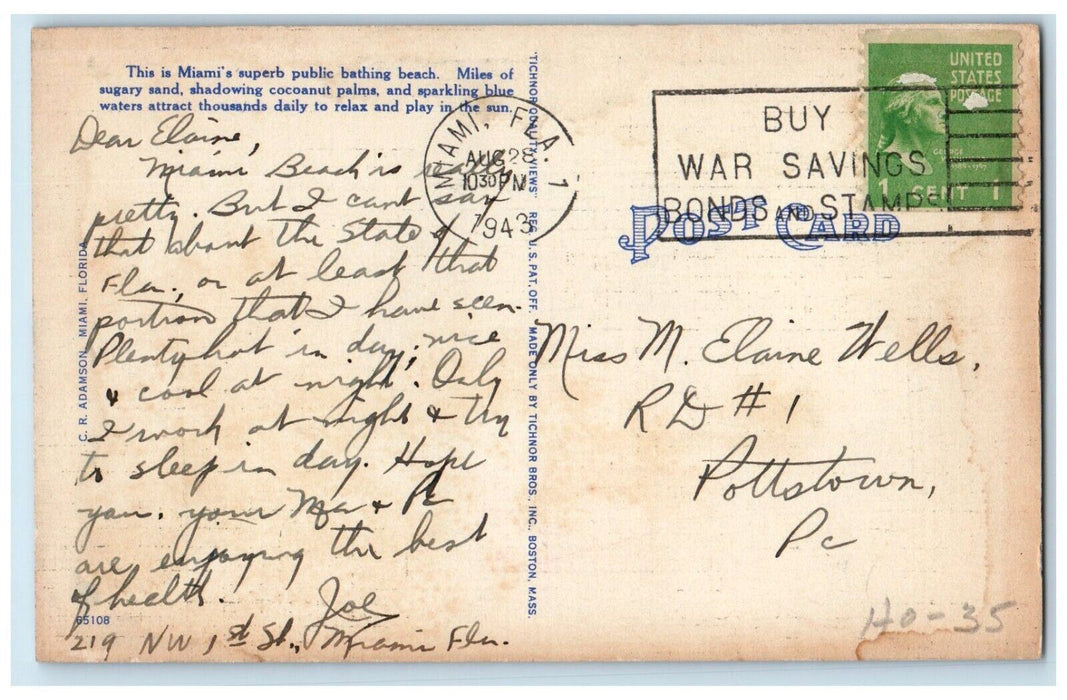 This is Miami's superb public bathing beach. Miles of
sugary sand, shadowing cocoanut palms, and sparkling blue
waters attract thousands daily to relax and play in the sun.
Dear Elaine,
Miami Beach is really
pretty. But I cant say
that about the State of
Fla., or at least that
portion that I have seen.
Plenty hot in day, nice
& cool at night. Only
I work at night & try
to sleep in day. Hope
you, your Ma & Pa
are enjoying the best
of health.
Joe
219 NW 1st St., Miami Fla.
65108
C. R. ADAMSON, MIAMI, FLORIDA
"TICHNOR QUALITY VIEWS" REG. U. S. PAT. OFF. MADE ONLY BY TICHNOR BROS. INC., BOSTON, MASS.
MIAMI, FLA. 1
AUG 28
1030 PM
1943
BUY
WAR SAVINGS
BONDS AND STAMPS
UNITED
STATES
POSTAGE
1 CENT 1
POST CARD
Miss M. Elaine Wells,
RD #1
Pottstown,
Pa
HO-35